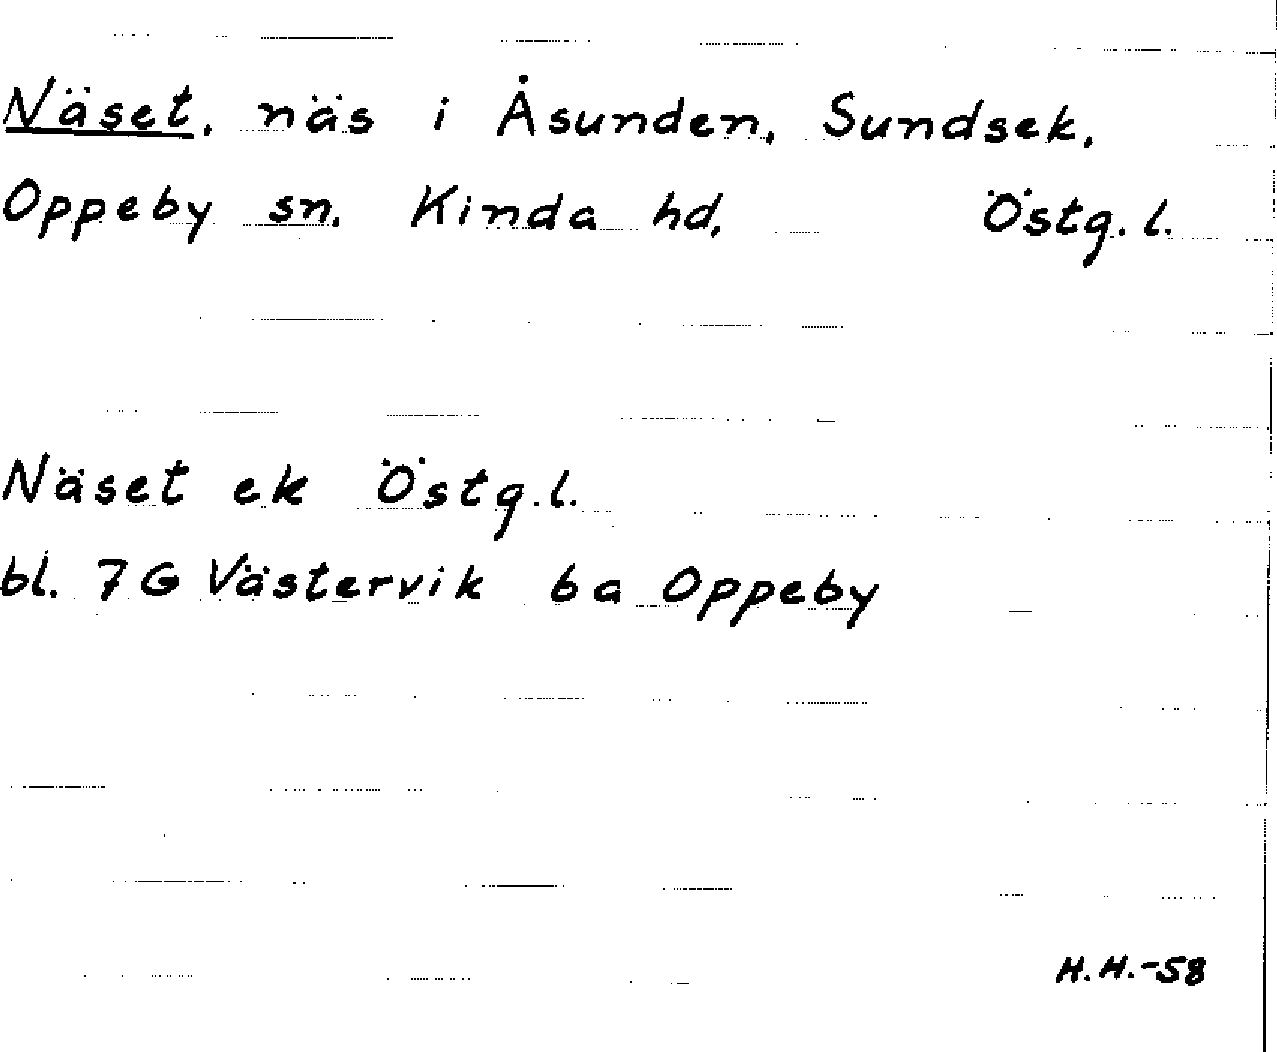 Näset, näs i Åsunden, Sundsek,
Oppeby sn. Kinda hd, Östg. l.
Näset ek Östg. l.
bl. 7 G Västervik 6 a Oppeby
H. H. -58